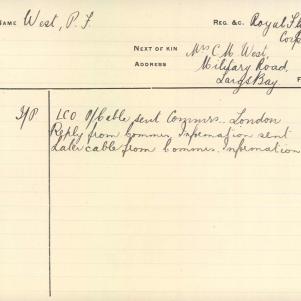 NAME West, P. F.
REG. &C. Royal Fl
Corp
NEXT OF KIN Mrs C. M. West,
ADDRESS Military Road,
Largs Bay
F
LCO P/Cable sent Commrs. London
Reply from Commrs. Information sent
Later cable from Commrs. Information